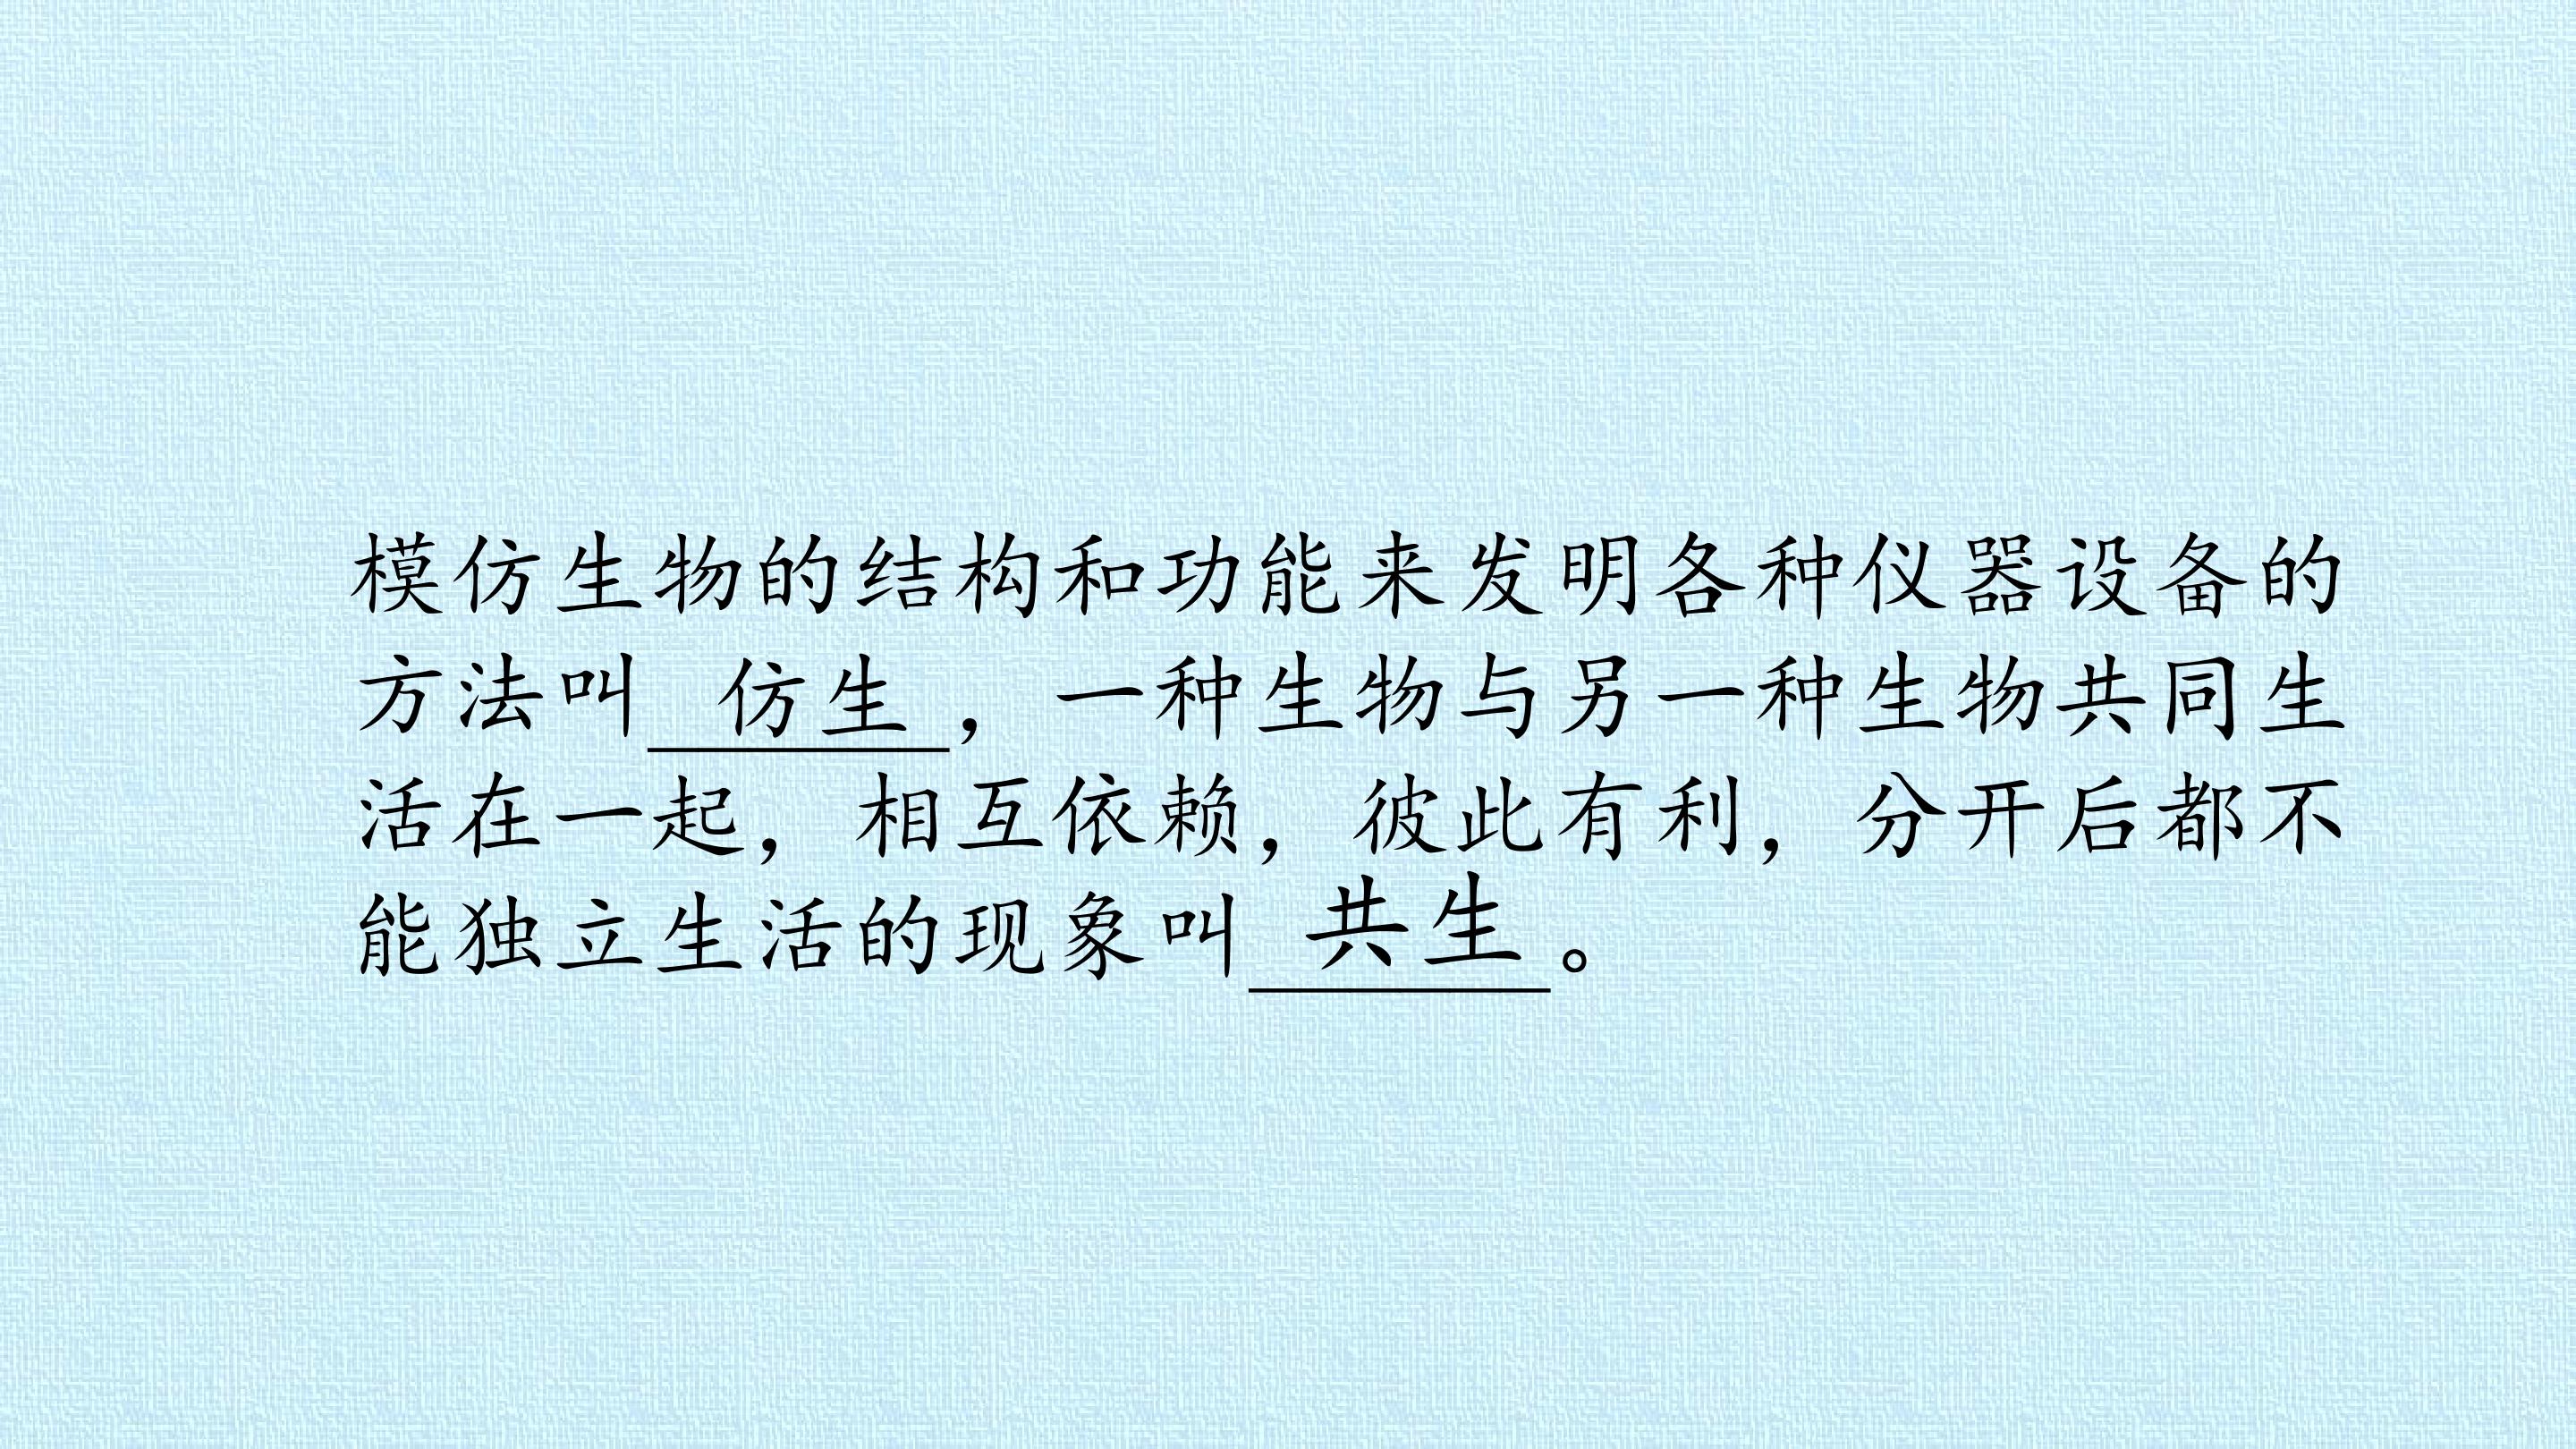 模仿生物的结构和功能来发明各种仪器设备的
方法叫 仿生 ，一种生物与另一种生物共同生
活在一起，相互依赖，彼此有利，分开后都不
能独立生活的现象叫 共生 。